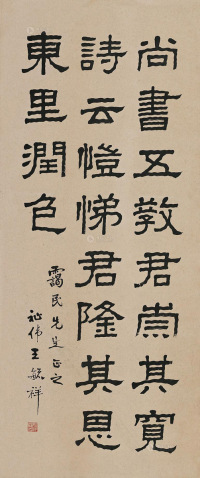 尚書五教君崇其寬
詩云愷悌君隆其恩
東里潤色
靄民先生正之
祉偉王毓祥